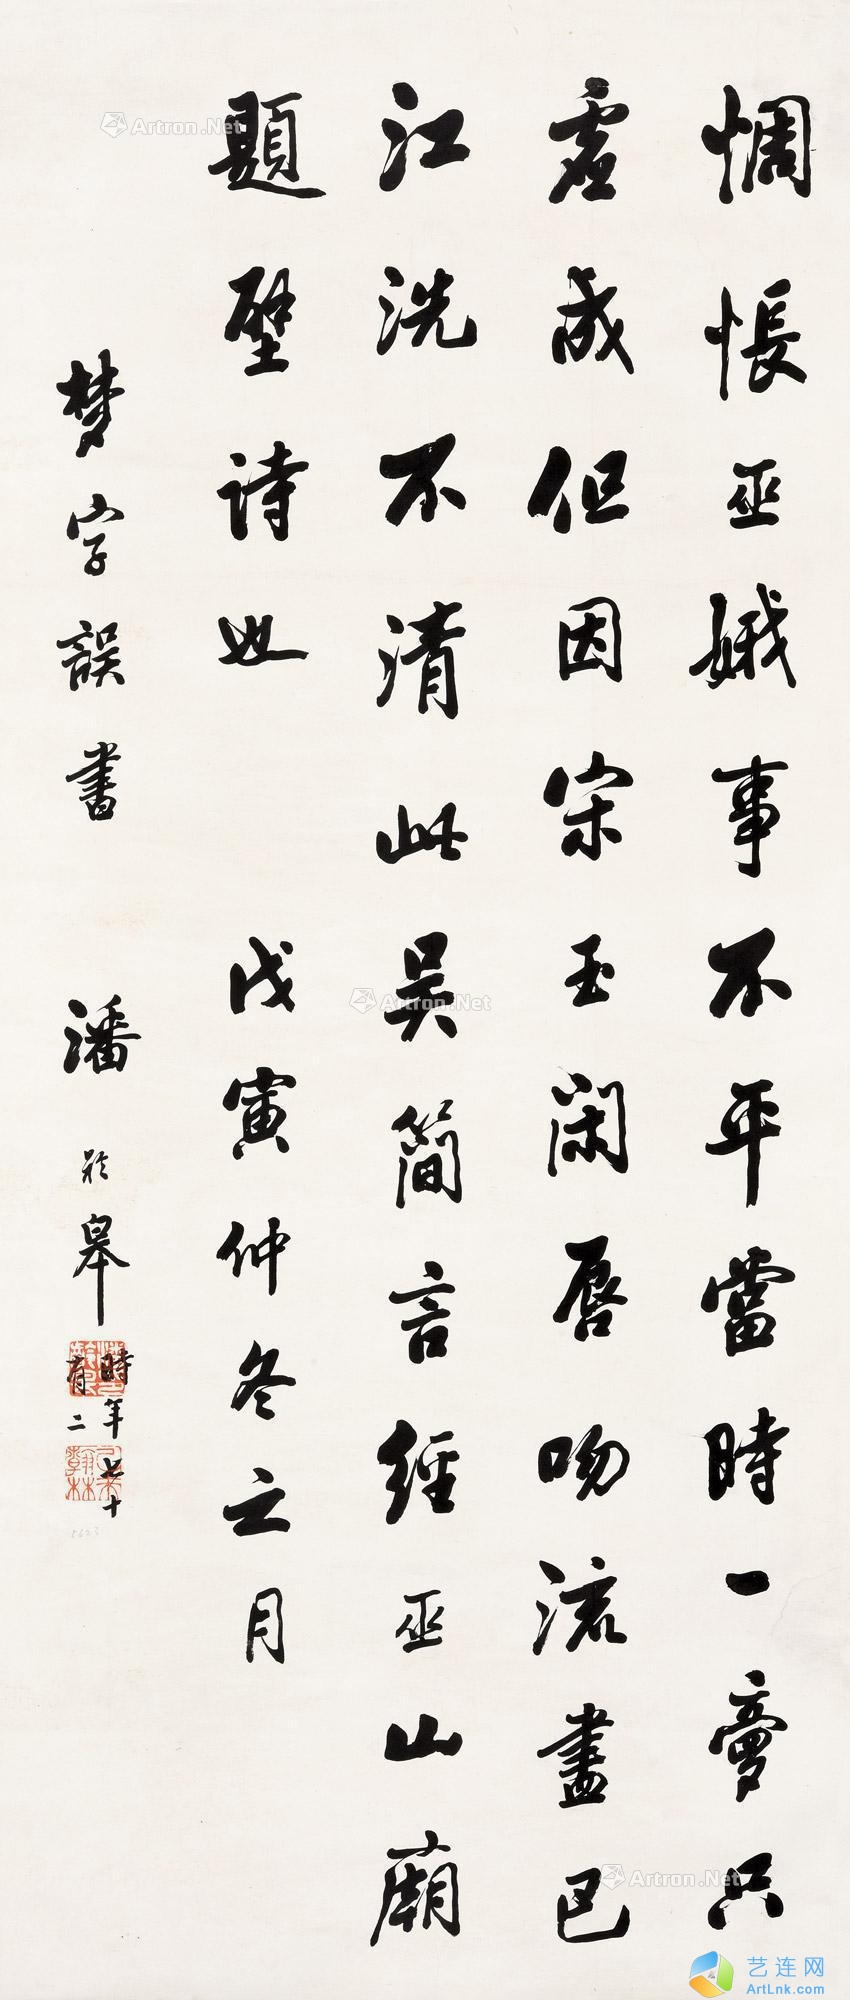 惆悵巫娥事不平當時一夣只
虛成但因宋玉閑唇吻流盡巴
江洗不清此吴簡言經巫山廟
題壁詩也 戊寅仲冬之月
梦字誤書 潘齡皋 時年七十
有二
Artron.Net
Artron.Net
Artron.Net
艺连网
ArtLnk.com